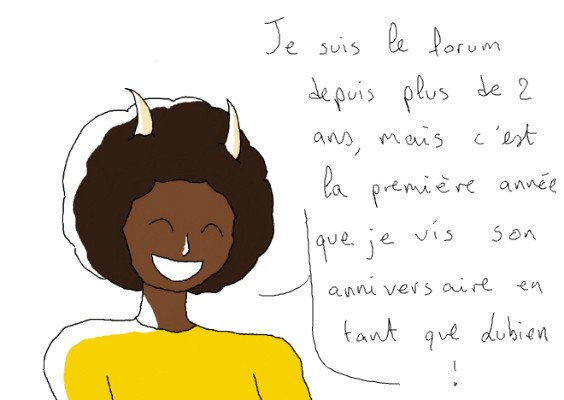 Je suis le forum
depuis plus de 2
ans, mais c'est
la première année
que je vis son
anniversaire en
tant que dubien
!